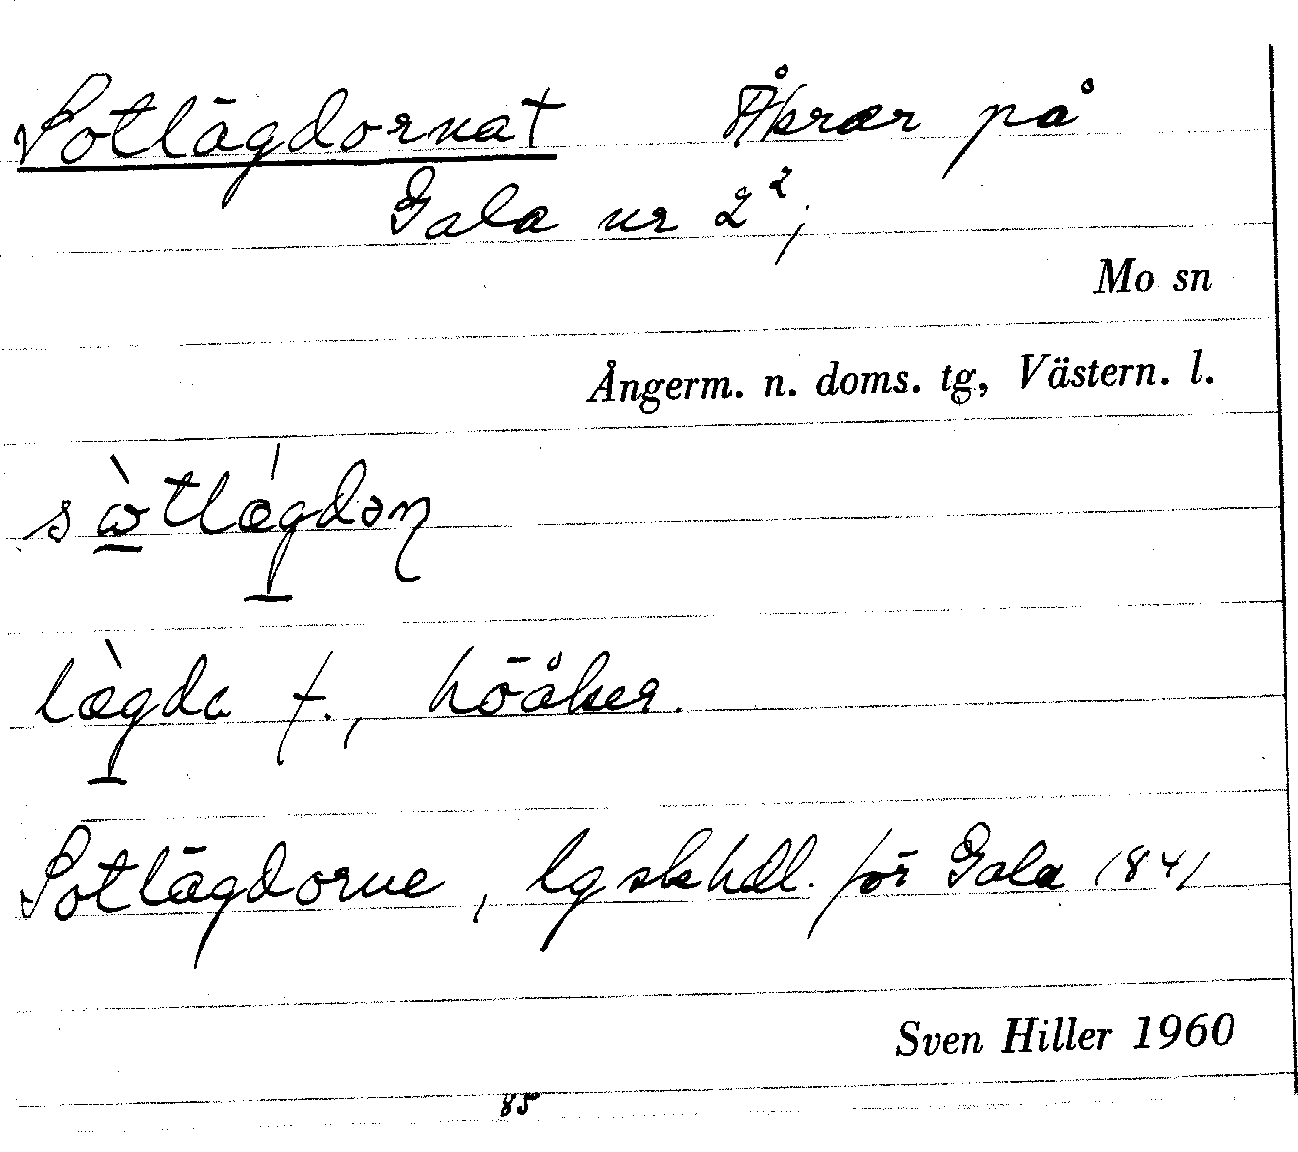 Sotlägdorna† Åkrar på
Gala nr 2²,
Mo sn
Ångerm. n. doms. tg, Västern. l.
lägda f., höåker.
Sotlägdorne, lgskhdl. för Gala 1841
Sven Hiller 1960
85